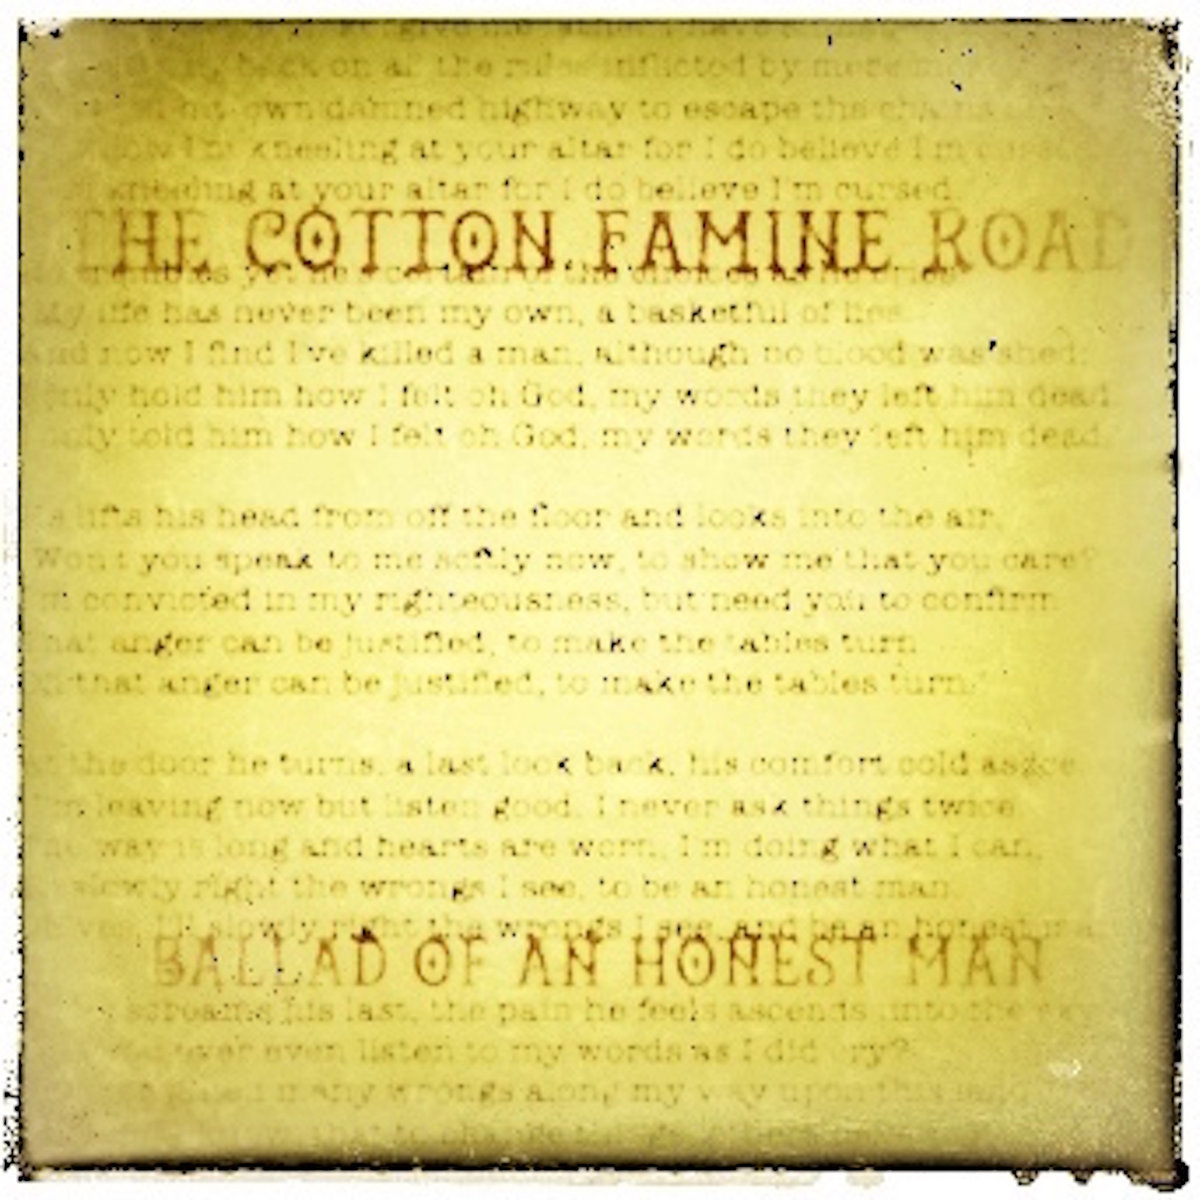 give me
back on all the rules inflicted by mere
own damned highway to escape the chains
now I'm kneeling at your altar for I do believe I'm cursed
kneeling at your altar for I do believe I'm cursed.
THE COTTON FAMINE ROAD
trembles yet he's certain of the choices as he cries
My life has never been my own, a basketful of lies
And now I find I've killed a man, although no blood was shed:
only hold him how I felt oh God, my words they left him dead
only told him how I felt oh God, my words they left him dead.
lifts his head from off the floor and looks into the air,
Won't you speak to me softly now, to show me that you care?
I'm convicted in my righteousness, but need you to confirm
That anger can be justified, to make the tables turn
that anger can be justified, to make the tables turn.
At the door he turns, a last look back, his comfort cold as ice
I'm leaving now but listen good, I never ask things twice
The way is long and hearts are worn, I'm doing what I can,
slowly right the wrongs I see, to be an honest man.
yes, I'll slowly right the wrongs I see, and be an honest man
BALLAD OF AN HONEST MAN
screams his last, the pain he feels ascends into the sky
ever even listen to my words as I did cry?
many wrongs along my way upon this land
that to